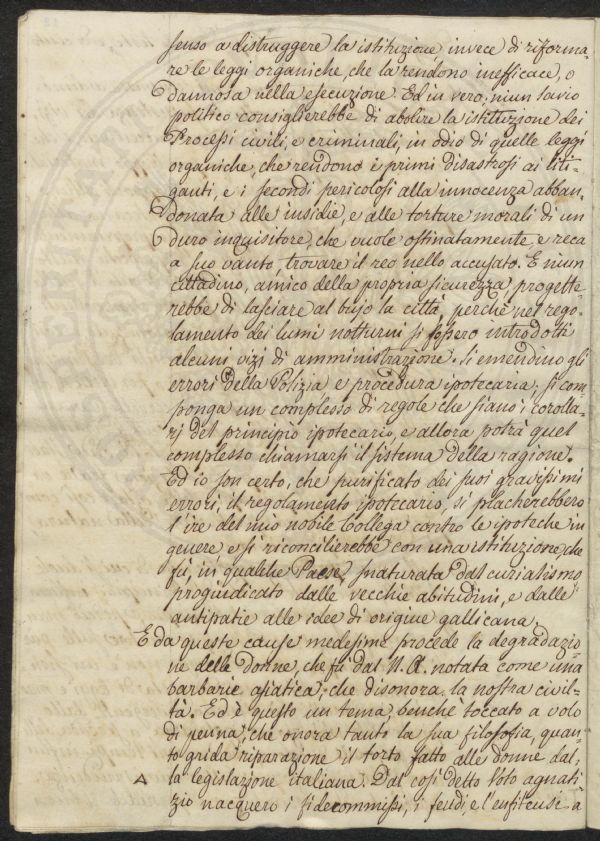 senso a distruggere la istituzione invece di riforma-
re le leggi organiche, che la rendono inefficace, o
dannosa nella esecuzione. Ed in vero; niun savio
politico consiglierebbe di abolire la istituzione dei
Processi civili, e criminali, in odio di quelle leggi
organiche, che rendono i primi disastrosi ai liti-
ganti, e i secondi pericolosi alla innocenza abban-
donata alle insidie, e alle torture morali di un
duro inquisitore, che vuole ostinatamente, e reca
a suo vanto, trovare il reo nello accusato. E niun
cittadino, amico della propria sicurezza progette
rebbe di lasciare al bujo la città, perchè nel rego-
lamento dei lumi notturni si fossero introdotti
alcuni vizi di amministrazione. Si emendino gli
errori della Polizia e procedura ipotecaria; si com-
ponga un complesso di regole che siano i corolla-
rj del principio ipotecario, e allora potrà quel
complesso chiamarsi il sistema della ragione.
Ed io son certo, che purificato dei suoi gravissimi
errori, il regolamento ipotecario, si placherebbero
l'ire del mio nobile Collega contro le ipoteche in
genere e si riconcilierebbe con una istituzione, che
fù, in qualche Paese, snaturata dal curialismo
progiudicato dalle vecchie abitudini, e dalle
antipatie alle idee di origine gallicana.
E da queste cause medesime procede la degradazio-
ne delle Donne, che fù dal N. A. notata come una
barbarie asiatica, che disonora la nostra civil-
tà. Ed è questo un tema, benchè toccato a volo
di penna, che onora tanto la sua filosofia, quan-
to grida riparazione il torto fatto alle donne dal-
la legislazione italiana. Dal così detto Voto agnati-
zio nacquero i fidecommissi, i feudi, e l'enfiteusi a